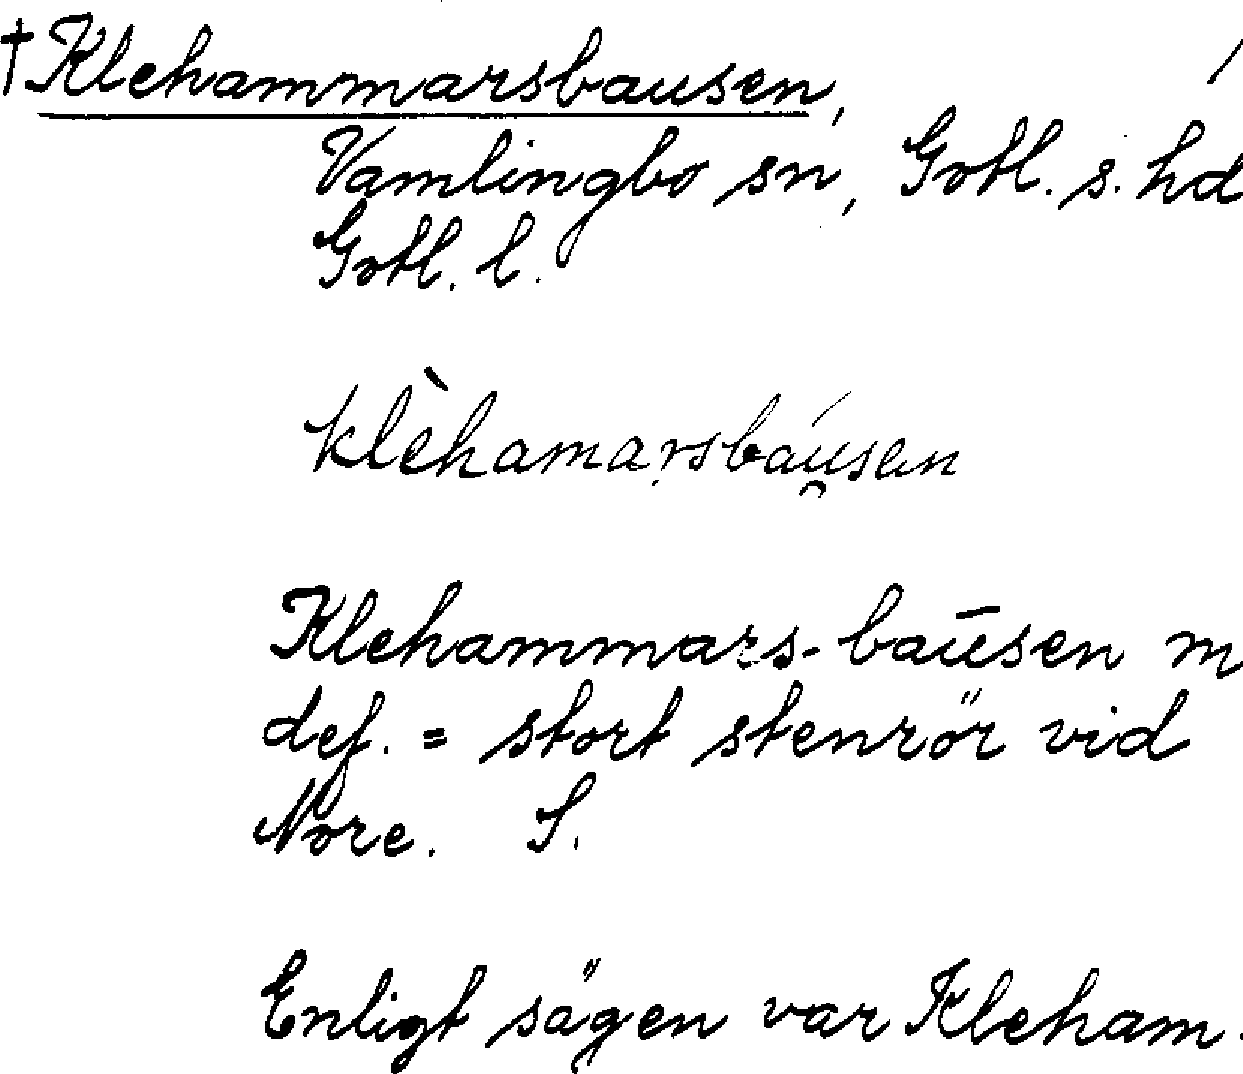 †Klehammarsbausen,
Vamlingbo sn, Gotl. s. hd
Gotl. l.
klèhamarsbáu̯sen
Klehammars-baūsen m
def. = stort stenrör vid
Nore. S.
Enligt sägen var Kleham-